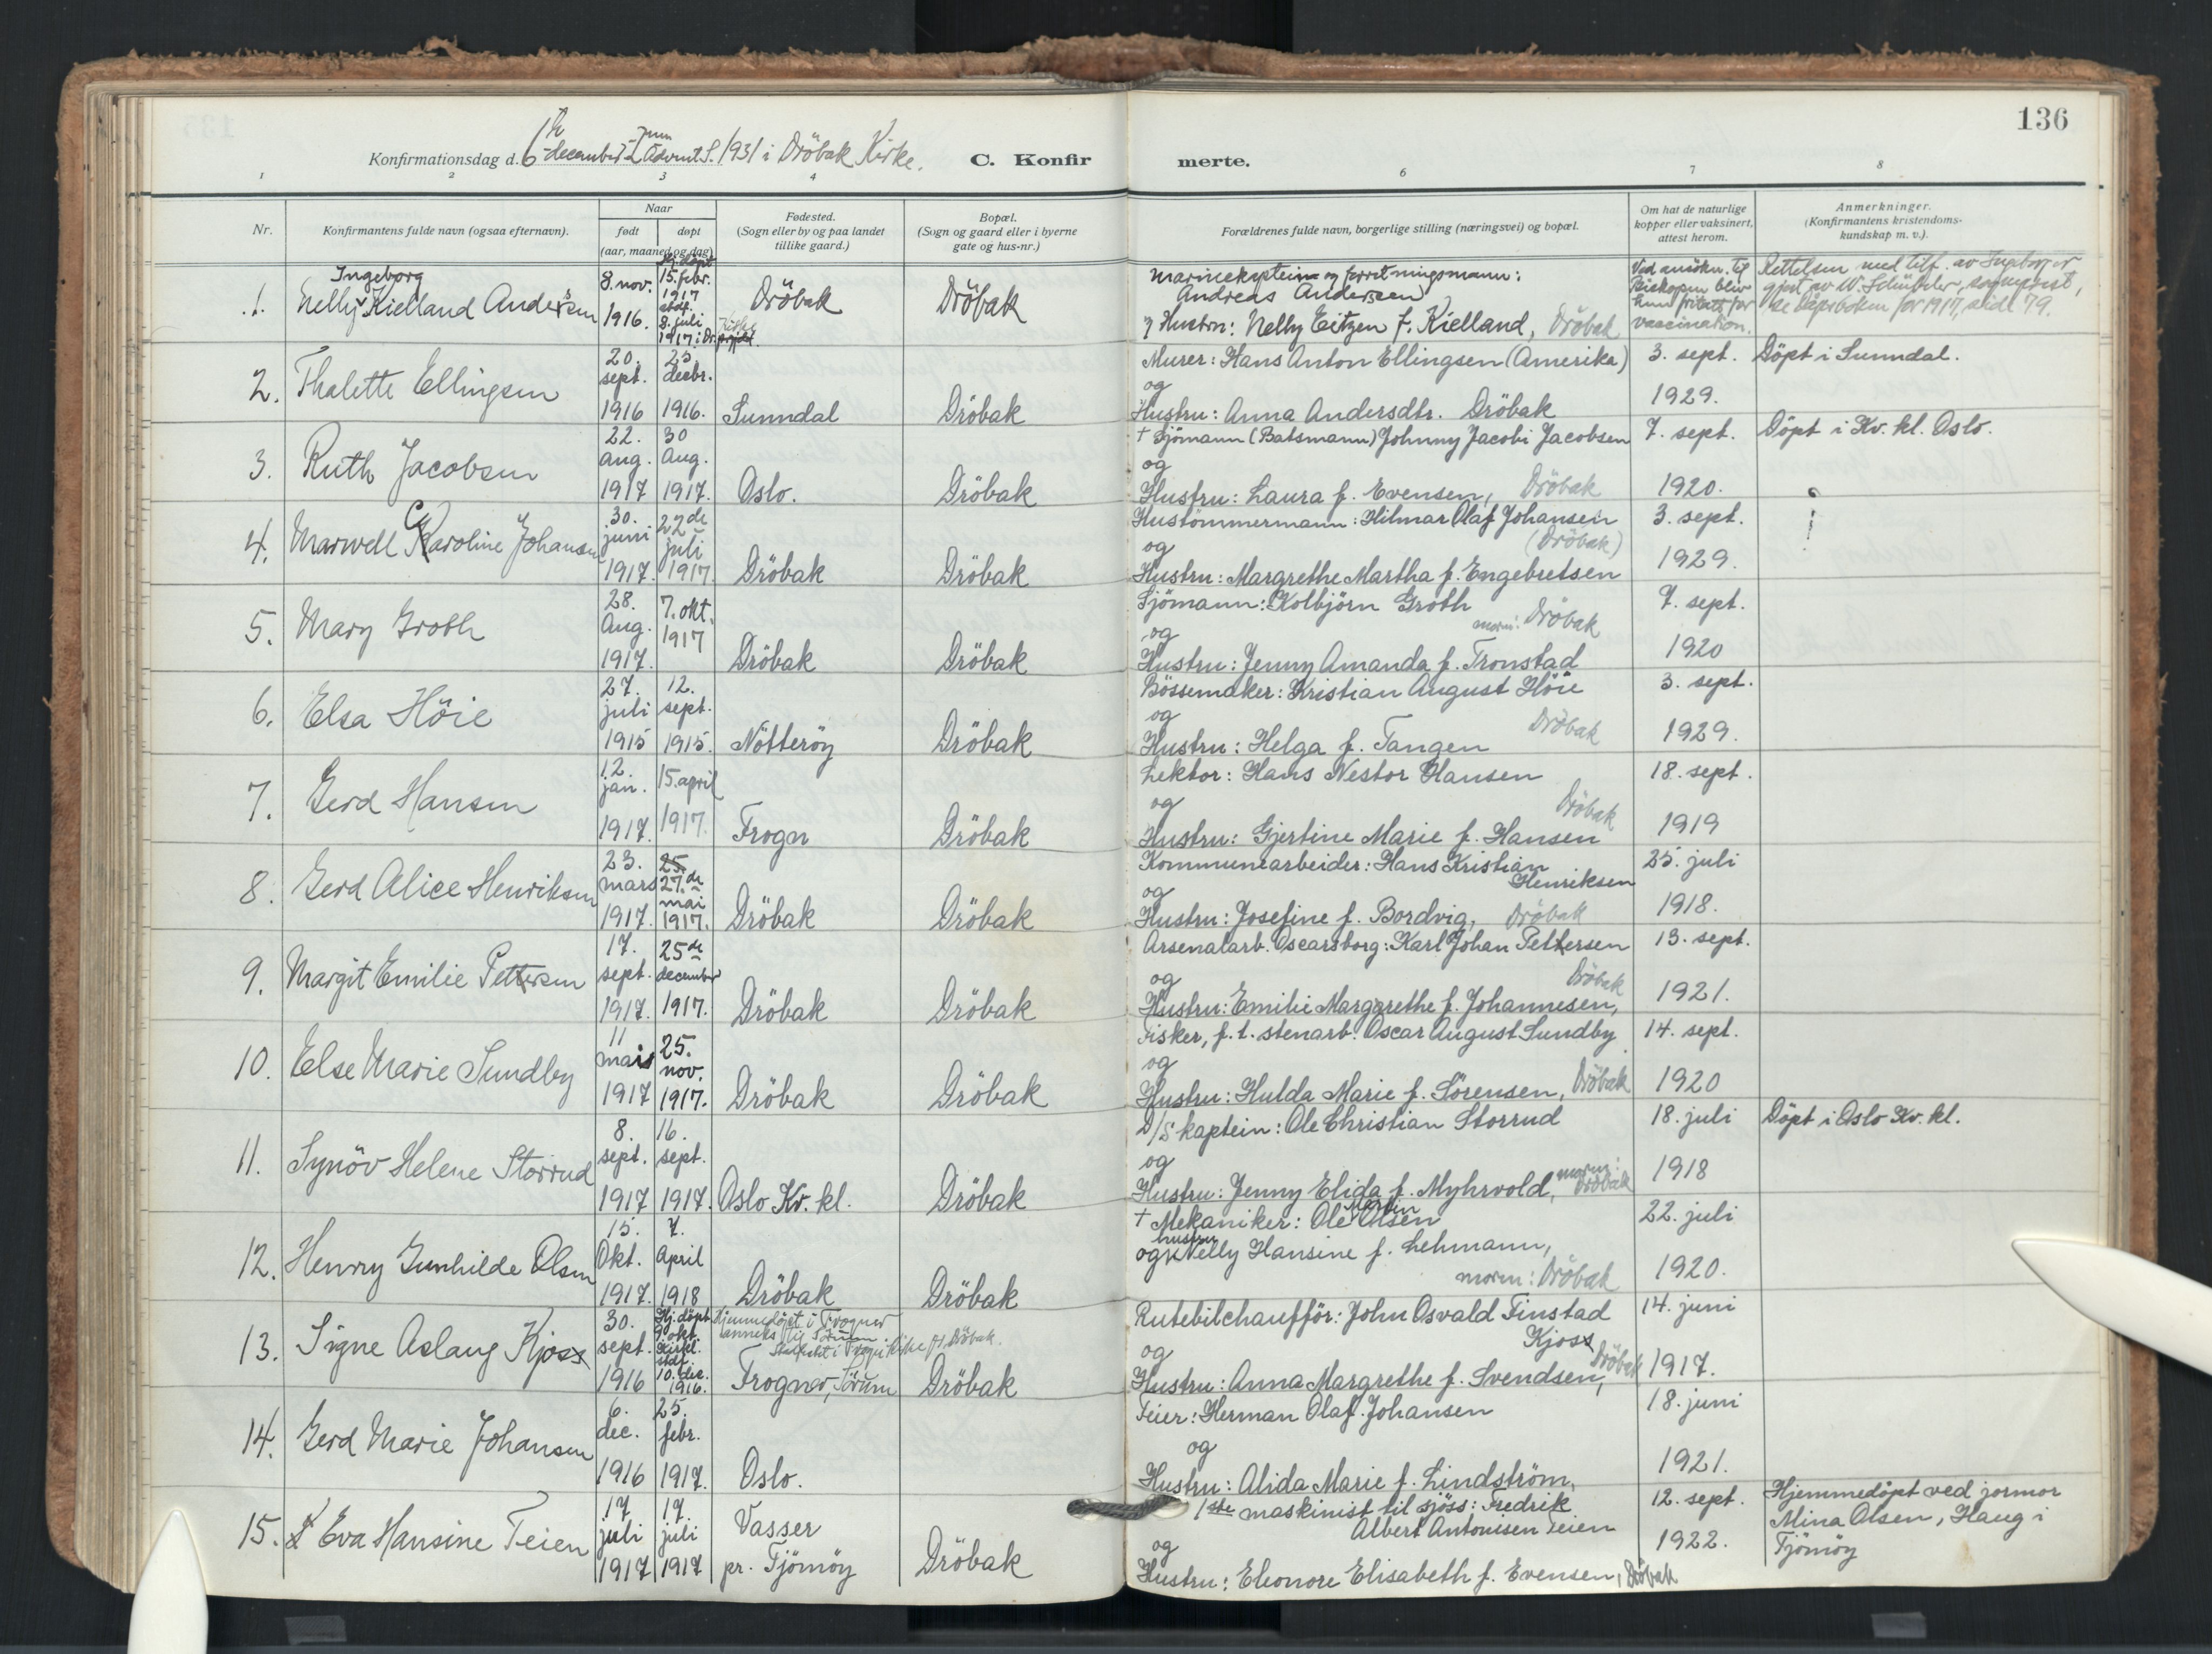 136
Konfirmationsdag d. 6te december 2nen Advent S. 1931 i Dröbak Kirke.
C. Konfir merte.
1 2 3 4 6 7 8
Nr.
Konfirmantens fulde navn (ogsaa efternavn).
Naar
født
døpt
(aar, maaned og dag)
Fødested.
(Sogn eller by og paa landet
tillike gaard.)
Bopæl.
(Sogn og gaard eller i byerne
gate og hus-nr.)
Forældrenes fulde navn, borgerlige stilling (næringsvei) og bopæl.
Om hat de naturlige
kopper eller vaksinert,
attest herom.
Anmerkninger.
(Konfirmantens kristendoms-
kundskap m. v.).
1. Nelly Ingeborg Kielland Andersen
8. nov. 1916.
Hj. döpt 15. febr. 1917 stdf. 8. juli 1917 i Dr. Kirke
Dröbak
Dröbak
Marinekaptein og forretningsmann:
Andreas Andersen
og Hustru: Nelly Eitzen f. Kielland, Dröbak
Ved ansökn. til
Biskopen blev
hun fritatt for
vaccination.
Rettelsen med tilf. av Ingeborg er
gjort av W. Schübeler, sogneprest,
se Döpeboken for 1917, side 79.
2. Thalette Ellingsen
20. sept. 1916
25 decbr. 1916.
Sunndal
Dröbak
Murer: Hans Anton Ellingsen (Amerika)
og
Hustru: Anna Andersdtr. Dröbak
3. sept. 1929.
Döpt i Sunndal.
3. Ruth Jacobsen
22. aug. 1917
30 aug. 1917.
Oslo.
Dröbak
† Sjömann (Batsmann) Johnny Jacobi Jacobsen
og
Hustru: Laura f. Evensen, Dröbak
7. sept. 1920.
Döpt i Kv. kl. Oslo.
4. Marwell Caroline Johansen
30. juni 1917.
22de juli 1917
Dröbak
Dröbak
Hustömmermann: Hilmar Olaf Johansen
(Dröbak)
og
Hustru: Margrethe Martha f. Engebretsen
3. sept. 1929.
5. Mary Groth
28. Aug. 1917.
7. okt. 1917
Dröbak
Dröbak
Sjömann: Kolbjörn Groth
og morm: Dröbak
Hustru: Jenny Amanda f. Tronstad
7. sept. 1920
6. Elsa Höie
27. juli 1915
12. sept. 1915.
Nötteröy
Dröbak
Bössemaker: Kristian August Höie
og Dröbak
Hustru: Helga f. Tangen
3. sept. 1929.
7. Gerd Hansen
12. jan. 1917.
15. april 1917.
Frogn
Dröbak
Lektor: Hans Nestor Hansen
og Dröbak
Hustru: Gjertine Marie f. Hansen
18. sept. 1919
8. Gerd Alice Henriksen
23. mars 1917.
25. 27.de mai 1917.
Dröbak
Dröbak
Kommunearbeider: Hans Kristian
Henriksen
og
Hustru: Josefine f. Bordvig, Dröbak
25. juli 1918.
9. Margit Emilie Pettersen
17. sept. 1917.
25de december 1917.
Dröbak
Dröbak
Arsenalarb. Oscarsborg: Karl Johan Pettersen
og Dröbak
Hustru: Emilie Margarethe f. Johannesen,
13. sept. 1921.
10. Else Marie Sundby
11 mars 1917
25. nov. 1917.
Dröbak
Dröbak
Fisker, f. t. stenarb. Oscar August Sundby
og
Hustru: Hulda Marie f. Sörensen, Dröbak
14. sept. 1920
11. Synöv Helene Storrud
8. sept. 1917
16. sept. 1917.
Oslo Kv. kl.
Dröbak
D/S kaptein: Ole Christian Storrud
og
Hustru: Jenny Elida f. Myhrvold, morm: Dröbak
18. juli 1918
Döpt i Oslo Kv. kl.
12. Henry Gunhilde Olsen
15. Okt. 1917.
7. April 1918
Dröbak
Dröbak
† Mekaniker: Ole Martin Olsen
og hustru Nelly Hansine f. Lehmann,
morm: Dröbak
22. juli 1920.
13. Signe Aslaug Kjoss
30. sept. 1916
Hj. döpt 9. okt. stdf. 10. dec. 1916.
Hjemmedöpt i Frogner
anneks til Sörum.
Frogner, Sörum
Dröbak
Rutebilchaufför: John Osvald Finstad
Kjoss
og Dröbak
Hustru: Anna Margrethe f. Svendsen,
14. juni 1917.
14. Gerd Marie Johansen
6. dec. 1916
25. febr. 1917.
Oslo.
Feier: Herman Olaf Johansen
og
Hustru: Alida Marie f. Lindström,
18. juni 1921.
15. Eva Hansine Teien
17 juli 1917
17. juli 1917
Vasser
pr. Tjömöy
Dröbak
1ste maskinist til sjöss: Fredrik
Albert Antonisen Teien
og
Hustru: Eleonore Elisabeth f. Evensen, Dröbak
12. sept. 1922.
Hjemmedöpt ved jormor
Mina Olsen, Haug i
Tjömöy